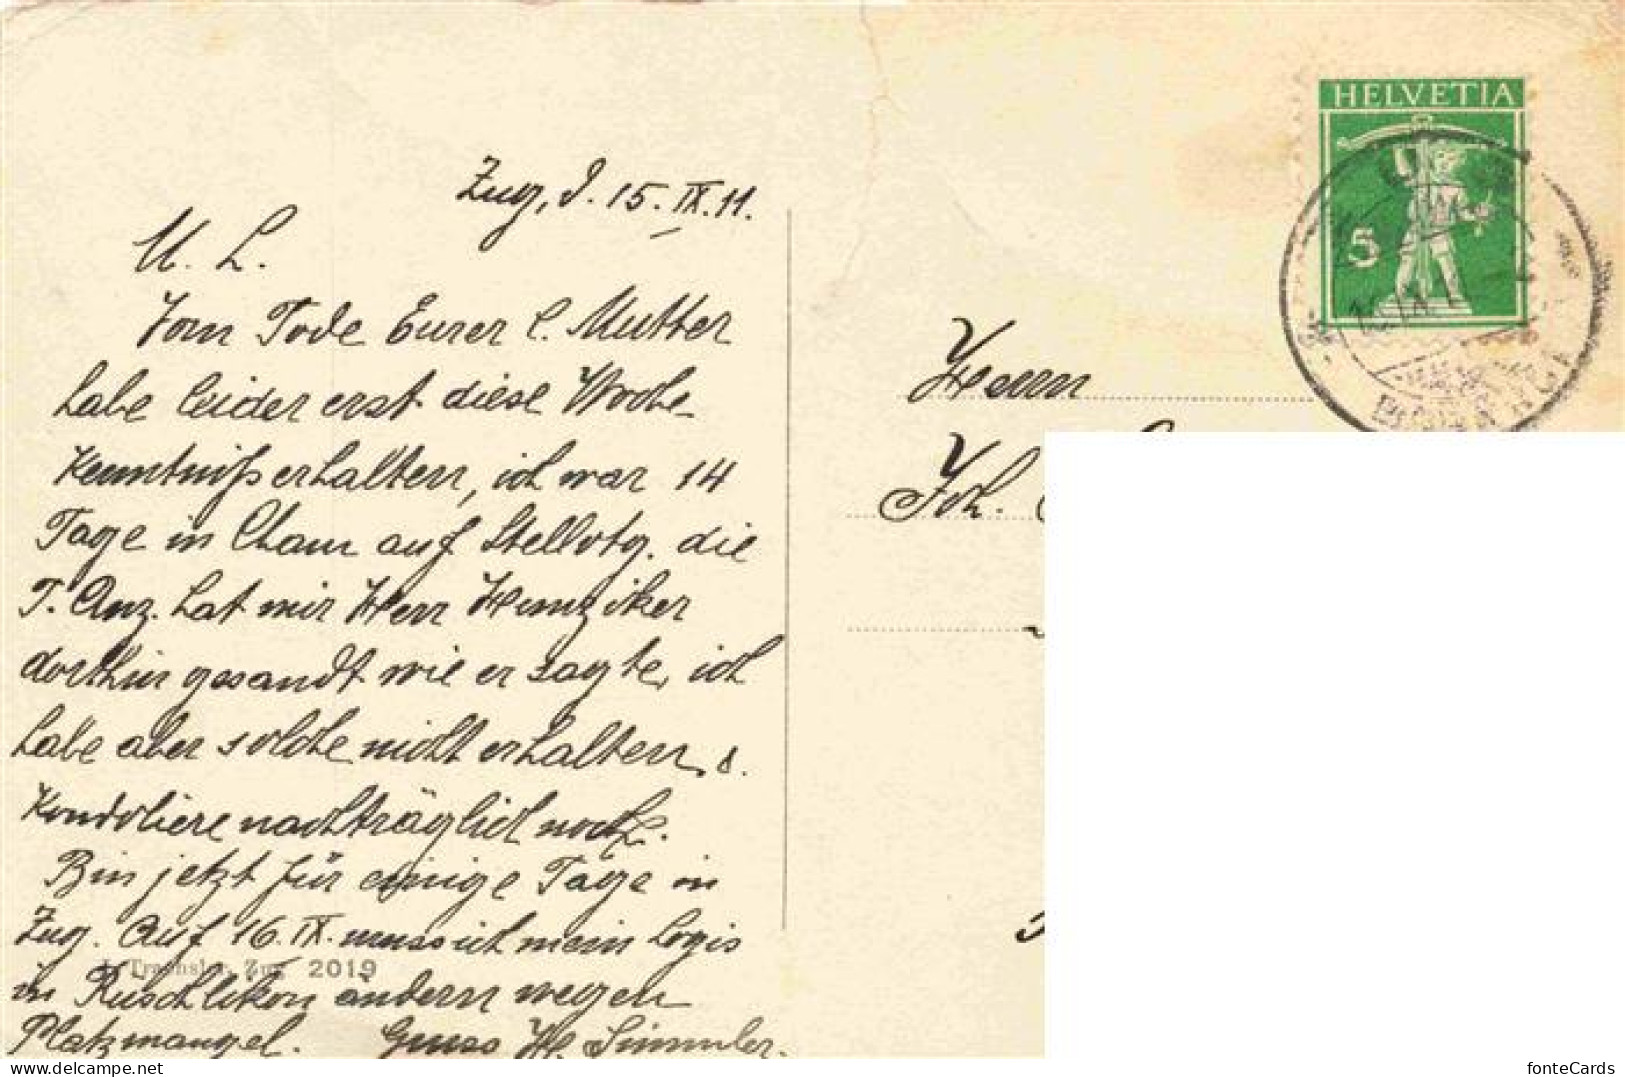 Zug, d. 15. IX. 11.
M. L.
Vom Tode Eurer l. Mutter
habe leider erst diese Woche
Kenntniss erhalten, ich war 14
Tage in Cham auf Stellvtg. die
T. Anz. hat mir Herr Hunziker
dorthin gesandt wie er sagte, ich
habe aber solche nicht erhalten, &.
Kondoliere nachträglich noch.
Bin jetzt für einige Tage in
Zug. Auf 16. IX. muss ich mein Logis
in Rüschlikon ändern wegen
Platzmangel. Gruss H. Simmler.
J. Trachsler, Zug 2019
HELVETIA
5
Herrn
Joh.
fonteCards